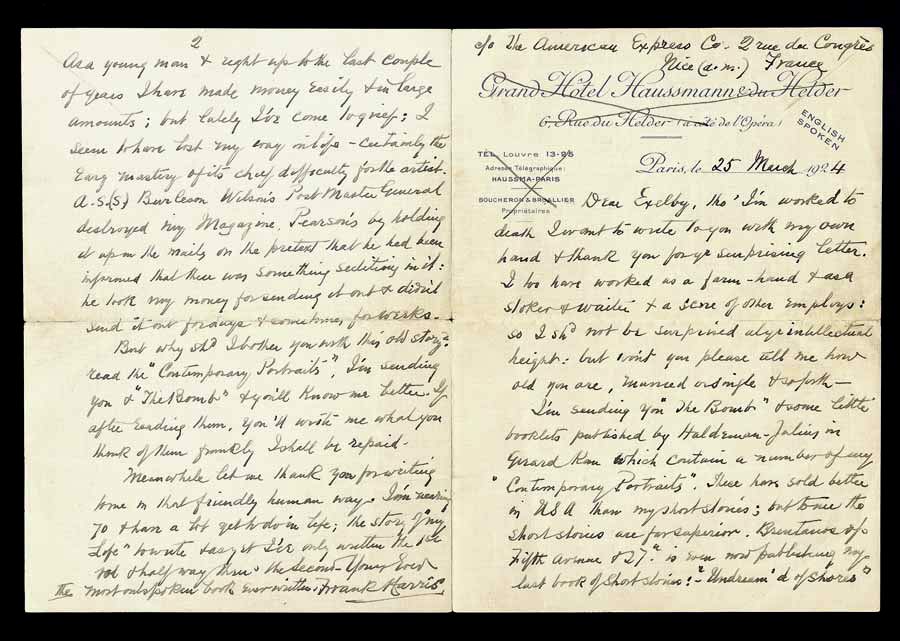 c/o The American Express Co. 2 rue du Congrès
Nice (a.m.) France
Grand Hôtel Haussmann & du Helder
6, Rue du Helder (à côté de l'Opéra)
ENGLISH
SPOKEN
TÉL. Louvre 13-25
Adresse Télégraphique:
HAUSSMA-PARIS
BOUCHERON & BROALLIER
Propriétaires
Paris, le 25 March 1924
Dear Exelby, tho' I'm worked to
death I want to write to you with my own
hand & thank you for yr surprising letter.
I too have worked as a farm-hand & as a
stoker & waiter & a score of other employs:
so I shd not be surprised at yr intellectual
height: but won't you please tell me how
old you are, married or single & so forth —
I'm sending you "The Bomb" & some little
booklets published by Haldeman-Julius in
Girard Kan which contain a number of my
"Contemporary Portraits". These have sold better
in USA than my short stories; but to me the
short stories are far superior. Brentanos of
Fifth Avenue & 27th is even now publishing my
last book of short stories:- "Undream'd of Shores"
2
As a young man & right up to the last couple
of years I have made money easily & in large
amounts; but lately I've come to grief: I
seem to have lost my way in life - certainly the
easy mastery of its chief difficulty for the artist.
A.S.(S) Burleson Wilson's Post Master General
destroyed my Magazine, Pearson's by holding
it up in the mails on the pretext that he had been
informed that there was something seditious in it:
he took my money for sending it out & didn't
send it out for days & sometimes, for weeks -
But why shd I bother you with this old story?
read the "Contemporary Portraits", I'm sending
you & "The Bomb" & you'll know me better. If
after reading them, you'll write me what you
think of them frankly I shall be repaid -
Meanwhile let me thank you for writing
to me in that friendly human way. I'm nearing
70 & have a lot yet to do in life; the story of "my
Life" to write & as yet I've only written the 1st
vol & half way thro' the second - Yours Ever
the most outspoken book ever written. Frank Harris.